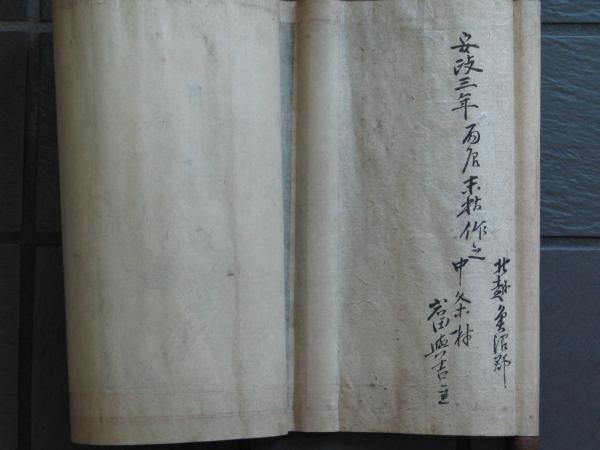 安政三年丙辰末秋作之
北越魚沼郡
中条村
岩田與吉主